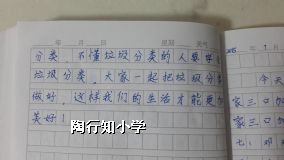 年 月 日 星期 天气
分类，不懂垃圾分类的人要学
垃圾分类，大家一起把垃圾分类
做好，这样我们的生活才能更加
美好！
陶行知小学
年 1
今天
家三口
家三